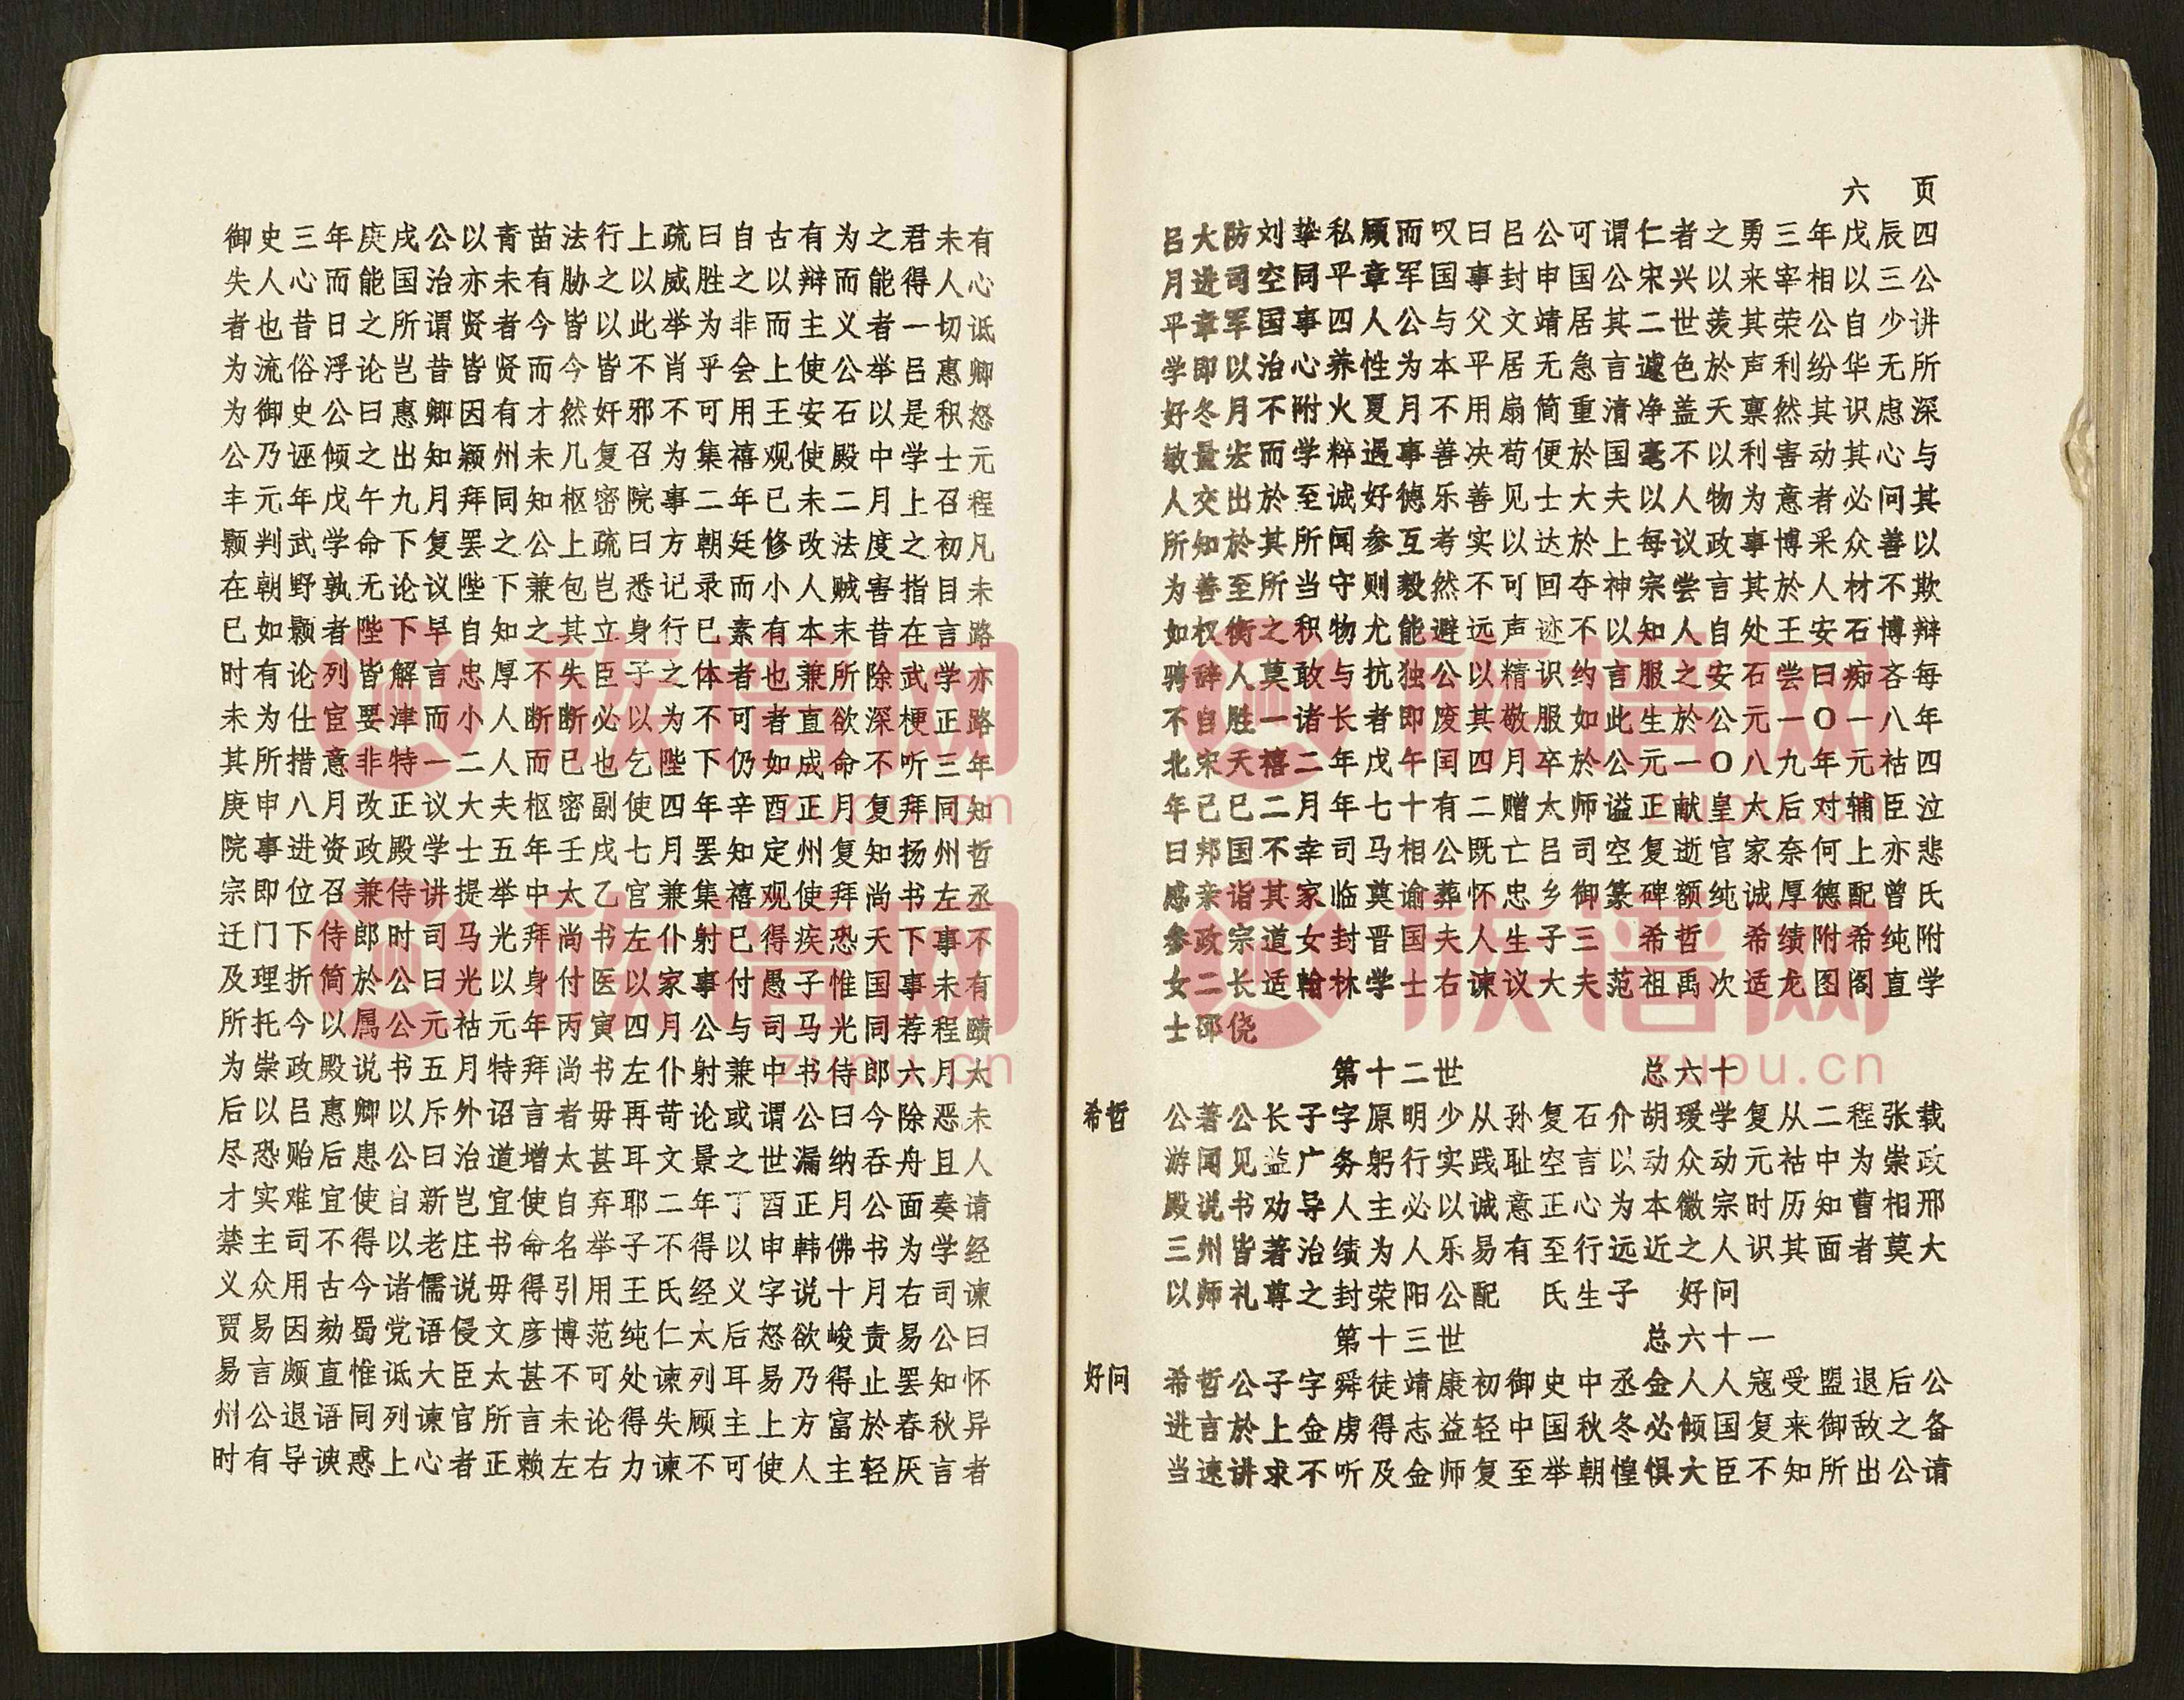 御史三年庚戌公以青苗法行上疏曰自古有为之君未有
失人心而能国治亦未有胁之以威胜之以辩而能得人心
者也昔日之所谓贤者今皆以此举为非而主义者一切诋
为流俗浮论岂昔皆贤而今皆不肖乎会上使公举吕惠卿
为御史公曰惠卿因有才然奸邪不可用王安石以是积怒
公乃诬倾之出知颍州未几复召为集禧观使殿中学士元
丰元年戊午九月拜同知枢密院事二年已未二月上召程
颢判武学命下复罢之公上疏曰方朝廷修改法度之初凡
在朝野孰无论议陛下兼包岂悉记录而小人贼害指目未
已如颢者陛下早自知之其立身行已素有本末昔在言路
时有论列皆解言忠厚不失臣子之体者也兼所除武学亦
未为仕宦要津而小人断断必以为不可者直欲深梗正路
其所措意非特一二人而已也乞陛下仍如成命不听三年
庚申八月改正议大夫枢密副使四年辛酉正月复拜同知
院事进资政殿学士五年壬戌七月罢知定州复知扬州哲
宗即位召兼侍讲提举中太乙官兼集禧观使拜尚书左丞
迁门下侍郎时司马光拜尚书左仆射已得疾恐天下事不
及理折简於公曰光以身付医以家事付愚子惟国事未有
所托今以属公元祐元年丙寅四月公与司马光同荐程赜
为崇政殿说书五月特拜尚书左仆射兼中书侍郎六月太
后以吕惠卿以斥外诏言者毋再苛论或谓公曰今除恶未
尽恐贻后患公曰治道增太甚耳文景之世漏纳吞舟且人
才实难宜使自新岂宜使自弃耶二年丁酉正月公面奏请
禁主司不得以老庄书命名举子不得以申韩佛书为学经
义众用古今诸儒说毋得引用王氏经义字说十月右司谏
贾易因劾蜀党语侵文彦博范纯仁太后怒欲峻责易公曰
易言颇直惟诋大臣太甚不可处谏列耳易乃得止罢知怀
州公退语同列谏官所言未论得失顾主上方富於春秋异
时有导谀惑上心者正赖左右力谏不可使人主轻厌言者
六 页
吕大防刘挚私顾而叹曰吕公可谓仁者之勇三年戊辰四
月进司空同平章军国事封申国公宋兴以来宰相以三公
平章军国事四人公与父文靖居其二世羡其荣公自少讲
学即以治心养性为本平居无急言遽色於声利纷华无所
好冬月不附火夏月不用扇简重清净盖天禀然其识虑深
敏量宏而学粹遇事善决苟便於国毫不以利害动其心与
人交出於至诚好德乐善见士大夫以人物为意者必问其
所知於其所闻参互考实以达於上每议政事博采众善以
为善至所当守则毅然不可回夺神宗尝言其於人材不欺
如权衡之积物尤能避远声迹不以知人自处王安石博辩
骋辞人莫敢与抗独公以精识约言服之安石尝曰痴吝每
不自胜一诸长者即废其敬服如此生於公元一〇一八年
北宋天禧二年戊午闰四月卒於公元一〇八九年元祐四
年己巳二月年七十有二赠太师谥正献皇太后对辅臣泣
曰邦国不幸司马相公既亡吕司空复逝官家奈何上亦悲
感亲诣其家临奠谕葬怀忠乡御篆碑额纯诚厚德配曾氏
参政宗道女封晋国夫人生子三 希哲 希绩附希纯附
女二长适翰林学士右谏议大夫范祖禹次适龙图阁直学
士邵侥
第十二世 总六十
希哲 公著公长子字原明少从孙复石介胡瑗学复从二程张载
游闻见益广务躬行实践耻空言以动众动元祜中为崇政
殿说书劝导人主必以诚意正心为本徽宗时历知曹相邢
三州皆著治绩为人乐易有至行远近之人识其面者莫大
以师礼尊之封荣阳公配 氏生子 好问
第十三世 总六十一
好问 希哲公子字舜徒靖康初御史中丞金人人寇受盟退后公
进言於上金虏得志益轻中国秋冬必倾国复来御敌之备
当速讲求不听及金师复至举朝惶惧大臣不知所出公请
族谱网
zupu.cn
族谱网
zupu.cn
族谱网
zupu.cn
族谱网
zupu.cn